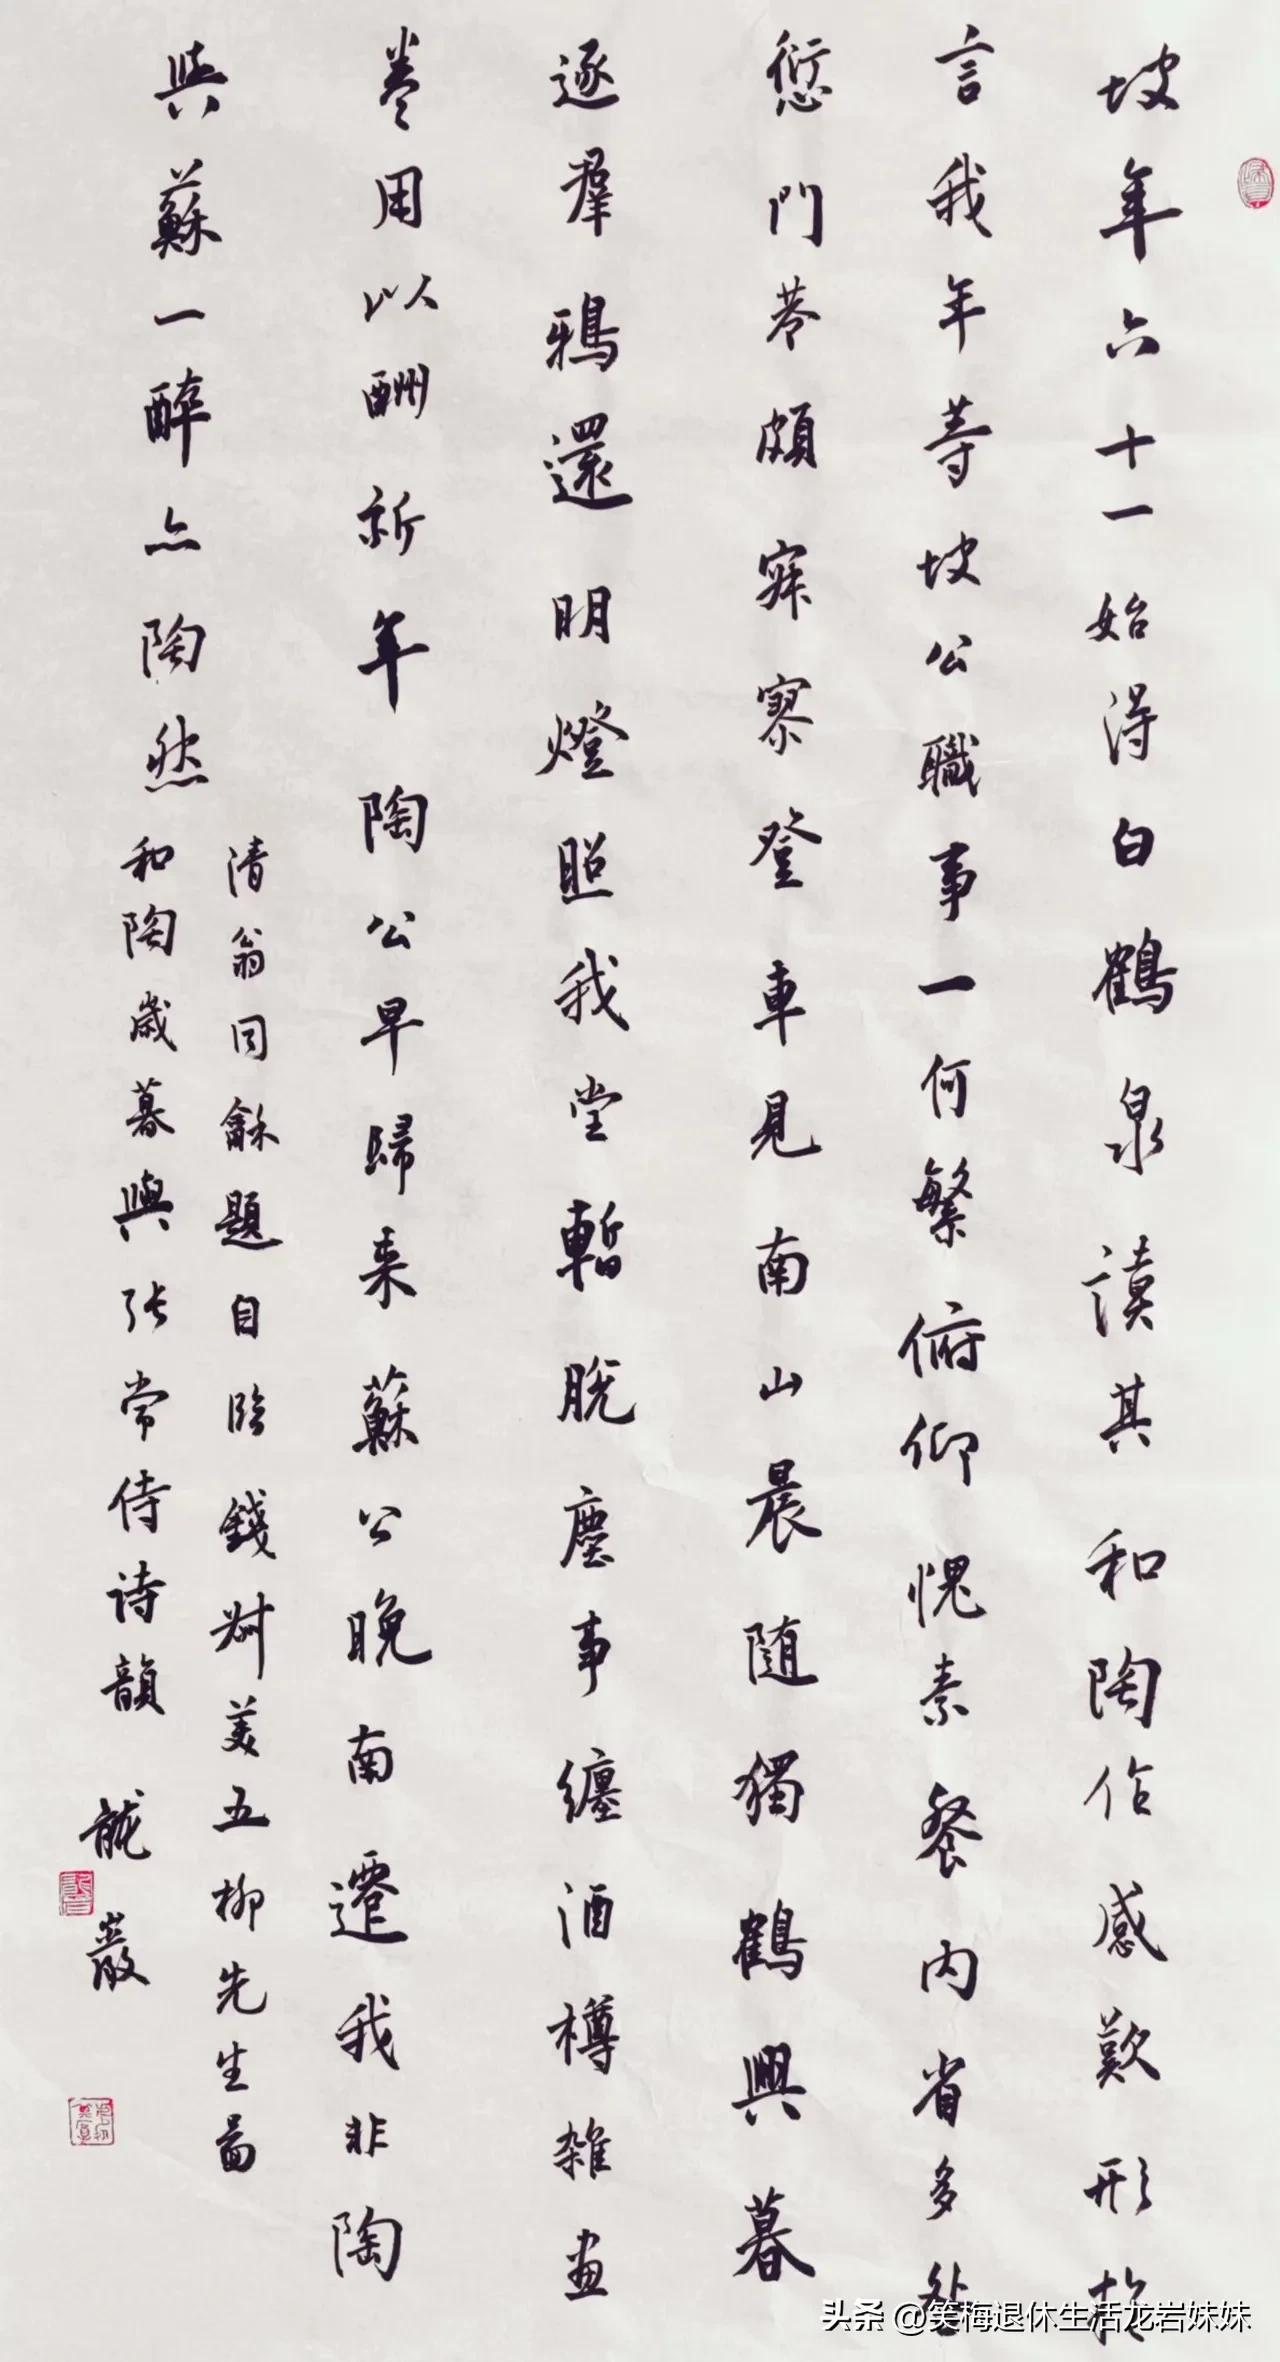 坡年六十一始得白鶴泉讀其和陶作感歎形於
言我年等坡公職事一何繁俯仰愧素餐內省多
愆門荅頗寂寥登車見南山晨随獨鶴興暮
逐羣鴉還明燈照我堂暫脫塵事纏酒樽雜畫
卷用以酬新年陶公早歸来蘇公晚南遷我非陶
與蘇一醉亦陶然
清翁同龢題自臨錢叔美五柳先生畐
和陶歲暮與张常侍诗韻 龍巖
头条 @笑梅退休生活龙岩妹妹